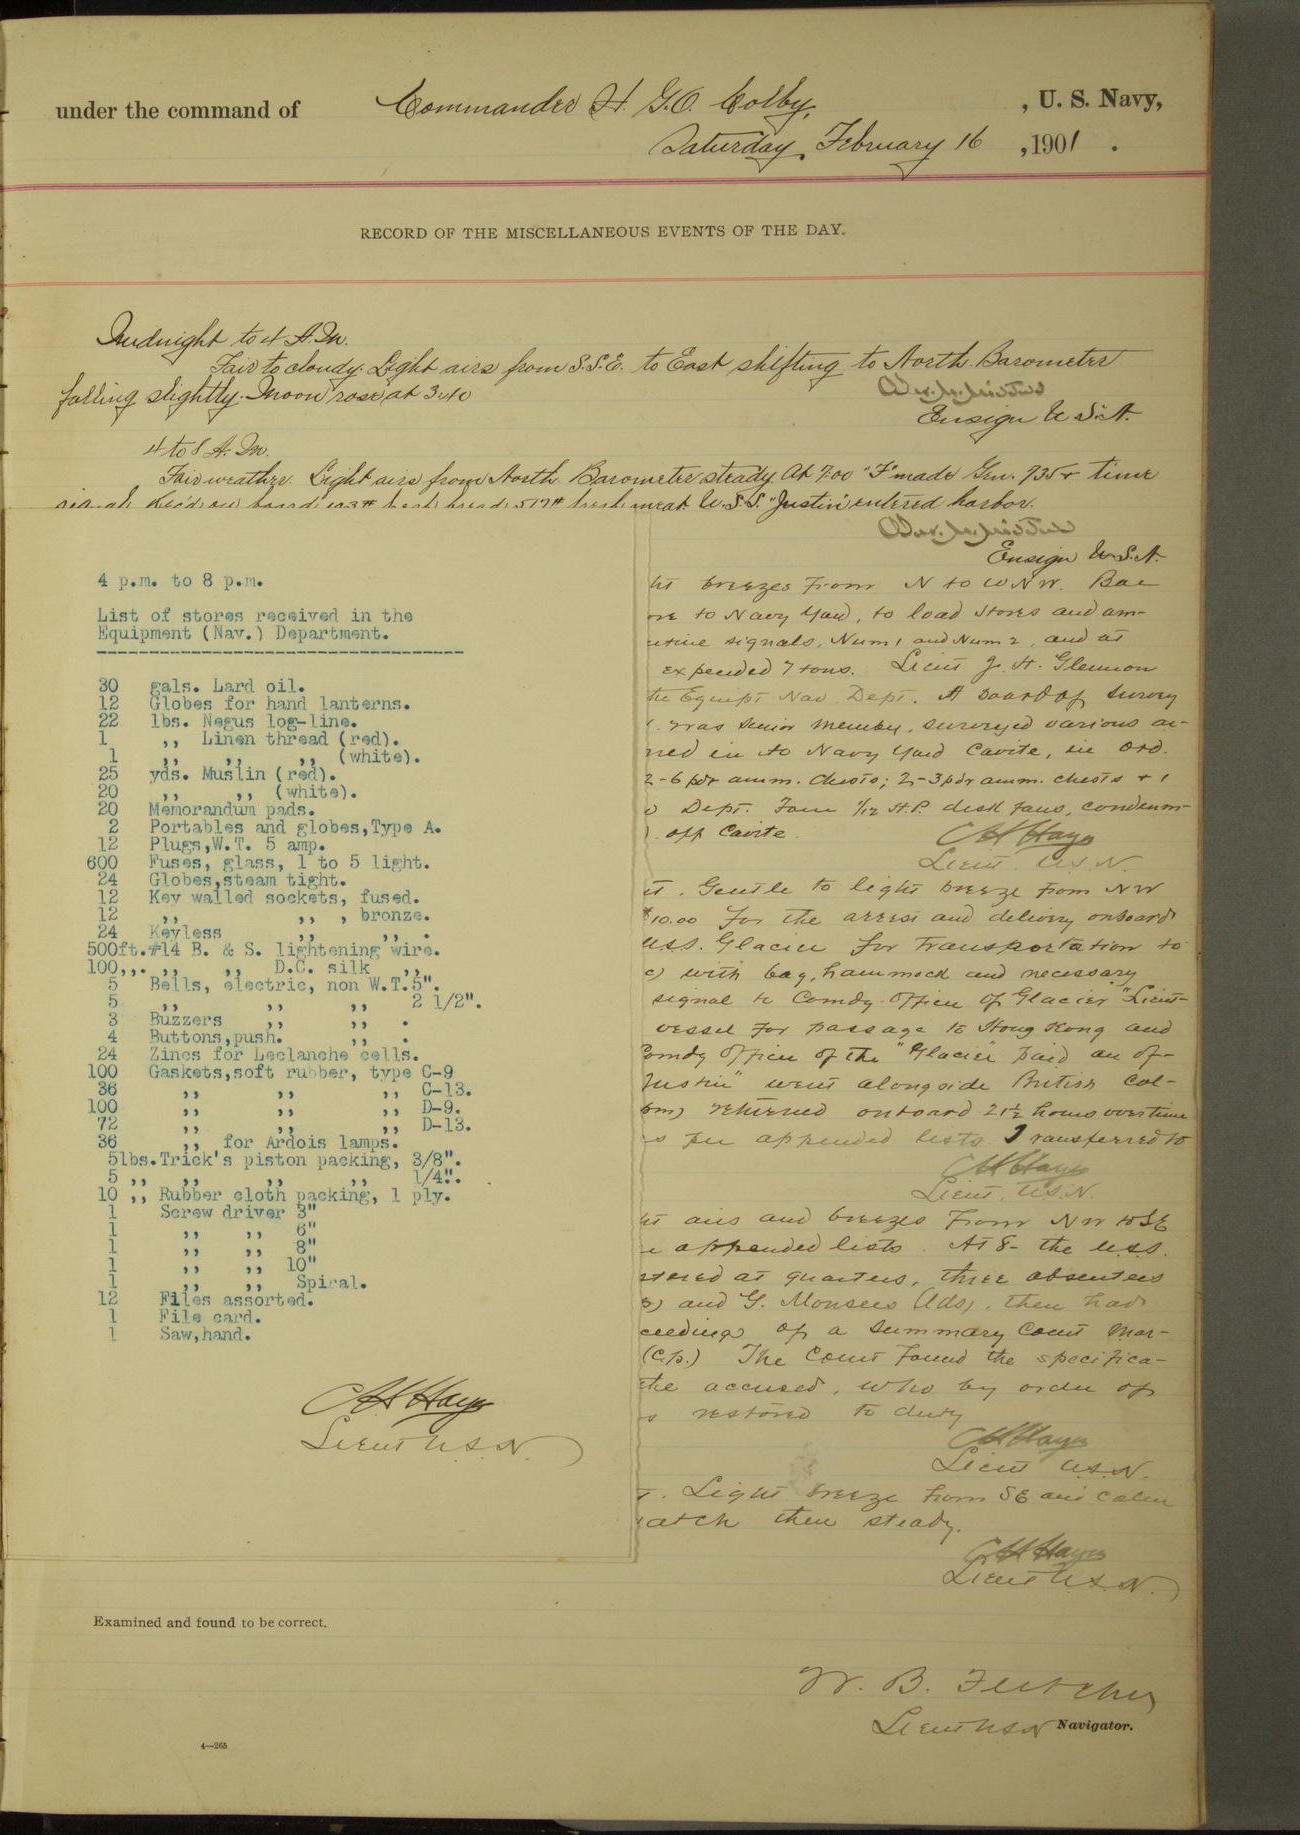 under the command of Commander H. G. O. Colby, , U. S. Navy,
Saturday, February 16 , 1901 .
RECORD OF THE MISCELLANEOUS EVENTS OF THE DAY.
Midnight to 4 A.M.
Fair to cloudy. Light airs from S.S.E. to East shifting to North. Barometer
falling slightly. Moon rose at 3.40
Ensign U.S.N.
4 to 8 A.M.
Fair weather. Light airs from North. Barometer steady. At 7.00 "F" made Gen. 735+ time
meat. U.S.S. "Justin" entered harbor.
Ensign U.S.N.
4 p.m. to 8 p.m.
List of stores received in the
Equipment (Nav.) Department.
-----------------------------------
30 gals. Lard oil.
12 Globes for hand lanterns.
22 lbs. Negus log-line.
1 ,, Linen thread (red).
1 ,, ,, ,, (white).
25 yds. Muslin (red).
20 ,, ,, (white).
20 Memorandum pads.
2 Portables and globes,Type A.
12 Plugs,W.T. 5 amp.
600 Fuses, glass, 1 to 5 light.
24 Globes,steam tight.
12 Key walled sockets, fused.
12 ,, ,, , bronze.
24 Keyless ,, ,, .
500ft.#14 B. & S. lightening wire.
100,,. ,, ,, D.C. silk ,,
5 Bells, electric, non W.T.5".
5 ,, ,, ,, 2 1/2".
3 Buzzers ,, ,, .
4 Buttons,push. ,, .
24 Zincs for Leclanche cells.
100 Gaskets,soft rubber, type C-9
36 ,, ,, ,, C-13.
100 ,, ,, ,, D-9.
72 ,, ,, ,, D-13.
36 ,, for Ardois lamps.
5lbs.Trick's piston packing, 3/8".
5 ,, ,, ,, ,, 1/4".
10 ,, Rubber cloth packing, 1 ply.
1 Screw driver 3"
1 ,, ,, 6"
1 ,, ,, 8"
1 ,, ,, 10"
1 ,, ,, Spiral.
12 Files assorted.
1 File card.
1 Saw,hand.
C H Hayes
Lieut U.S.N.
breezes from N to WNW. Bar
to Navy Yard, to load stores and am-
signals, Num 1 and Num 2, and at
expended 7 tons. Lieut J. H. Glennon
Equipt Nav Dept. A board of survey
was senior member, surveyed various ar-
in to Navy Yard Cavite, in Ord.
2-6 pdr amm. chests; 2-3 pdr amm. chests + 1
Dept. Four 1/12 H.P. desk fans, condemn-
off Cavite.
C H Hayes
Lieut U.S.N.
Gentle to light breeze from NW
$10.00 for the arrest and delivery onboard
U.S.S. Glacier for transportation to
with bag, hammock and necessary
signal to Comdg. Officer of Glacier "Lieut-
vessel for passage to Hong Kong and
Comdg Officer of the "Glacier" paid an of-
Justin" went alongside British Col-
returned onboard 21½ hours overtime
per appended lists. Transferred to
C H Hayes
Lieut. U.S.N.
airs and breezes from NW to SE
appended lists. At 8- the U.S.S.
at quarters, three absentees
and G. Monsees (Lds), then had
of a Summary Court Mar-
(C.p.) The Court found the specifica-
the accused, who by order of
restored to duty
C H Hayes
Lieut U.S.N.
Light breeze from SE and calm
then steady.
C H Hayes
Lieut U.S.N.
Examined and found to be correct.
W. B. Fletcher
Lieut USN Navigator.
4—265